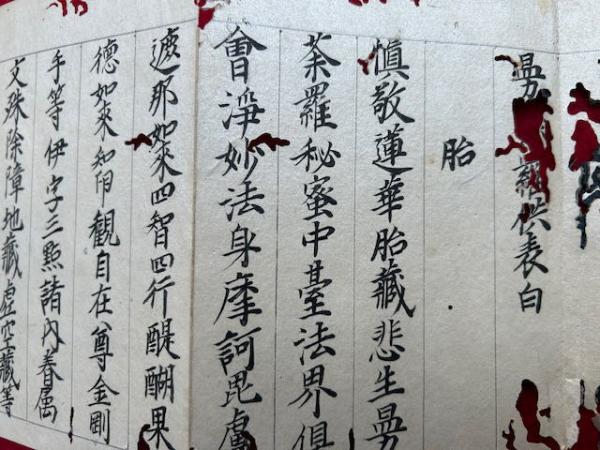 曼羅供表白
胎
慎敬蓮華胎藏悲生曼
荼羅秘蜜中臺法界俱
會淨妙法身摩訶毘盧
遮那如來四智四行醍醐果
德如來知印觀自在尊金剛
手等伊字三點諸内眷属
文殊除障地藏虛空藏等